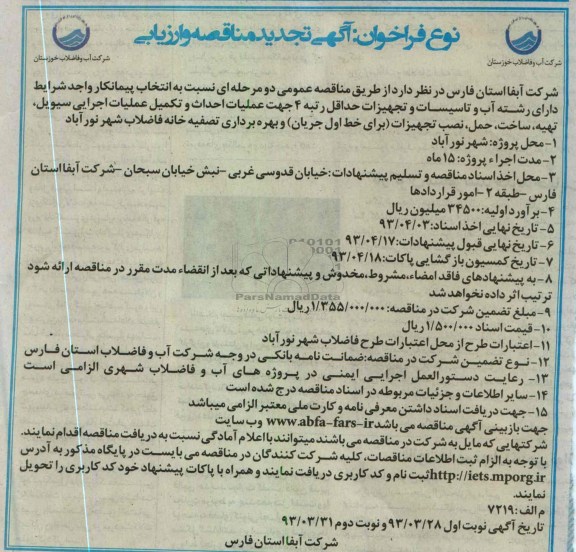 نوع فراخوان: آگهی تجدید مناقصه و ارزیابی
شرکت آب و فاضلاب خوزستان
شرکت آب و فاضلاب خوزستان
شرکت آبفا استان فارس در نظر دارد از طریق مناقصه عمومی دو مرحله ای نسبت به انتخاب پیمانکار واجد شرایط
دارای رشته آب و تاسیسات و تجهیزات حداقل رتبه ۴ جهت عملیات احداث و تکمیل عملیات اجرایی سیویل،
تهیه، ساخت، حمل، نصب تجهیزات (برای خط اول جریان) و بهره برداری تصفیه خانه فاضلاب شهر نورآباد
۱- محل پروژه: شهر نورآباد
۲- مدت اجراء پروژه: ۱۵ ماه
۳- محل اخذ اسناد مناقصه و تسلیم پیشنهادات: خیابان قدوسی غربی – نبش خیابان سبحان – شرکت آبفا استان
فارس – طبقه ۲ – امور قراردادها
۴- برآورد اولیه: ۳۴۵۰۰ میلیون ریال
۵- تاریخ نهایی اخذ اسناد: ۹۳/۰۴/۰۳
۶- تاریخ نهایی قبول پیشنهادات: ۹۳/۰۴/۱۷
۷- تاریخ کمسیون بازگشایی پاکات: ۹۳/۰۴/۱۸
۸- به پیشنهادهای فاقد امضاء، مشروط، مخدوش و پیشنهاداتی که بعد از انقضاء مدت مقرر در مناقصه ارائه شود
ترتیب اثر داده نخواهد شد
ParsNamadData
۹- مبلغ تضمین شرکت در مناقصه: ۱/۳۵۵/۰۰۰/۰۰۰ ریال
۱۰- قیمت اسناد ۱/۵۰۰/۰۰۰ ریال
۱۱- اعتبارات طرح از محل اعتبارات طرح فاضلاب شهر نورآباد
۱۲- نوع تضمین شرکت در مناقصه: ضمانت نامه بانکی در وجه شرکت آب و فاضلاب استان فارس
۱۳- رعایت دستورالعمل اجرایی ایمنی در پروژه های آب و فاضلاب شهری الزامی است
۱۴- سایر اطلاعات و جزئیات مربوطه در اسناد مناقصه درج شده است
۱۵- جهت دریافت اسناد داشتن معرفی نامه و کارت ملی معتبر الزامی میباشد
جهت بازبینی آگهی مناقصه می باشد www.abfa-fars-ir وب سایت
شرکتهایی که مایل به شرکت در مناقصه می باشند میتوانند با اعلام آمادگی نسبت به دریافت مناقصه اقدام نمایند.
با توجه به الزام ثبت اطلاعات مناقصات، کلیه شرکت کنندگان در مناقصه می بایست در پایگاه مذکور به آدرس
http://iets.mporg.ir ثبت نام و کد کاربری دریافت نمایند و همراه با پاکات پیشنهاد خود کد کاربری را تحویل
نمایند.
م الف: ۷۲۱۹
تاریخ آگهی نوبت اول ۹۳/۰۳/۲۸ و نوبت دوم ۹۳/۰۳/۳۱
شرکت آبفا استان فارس